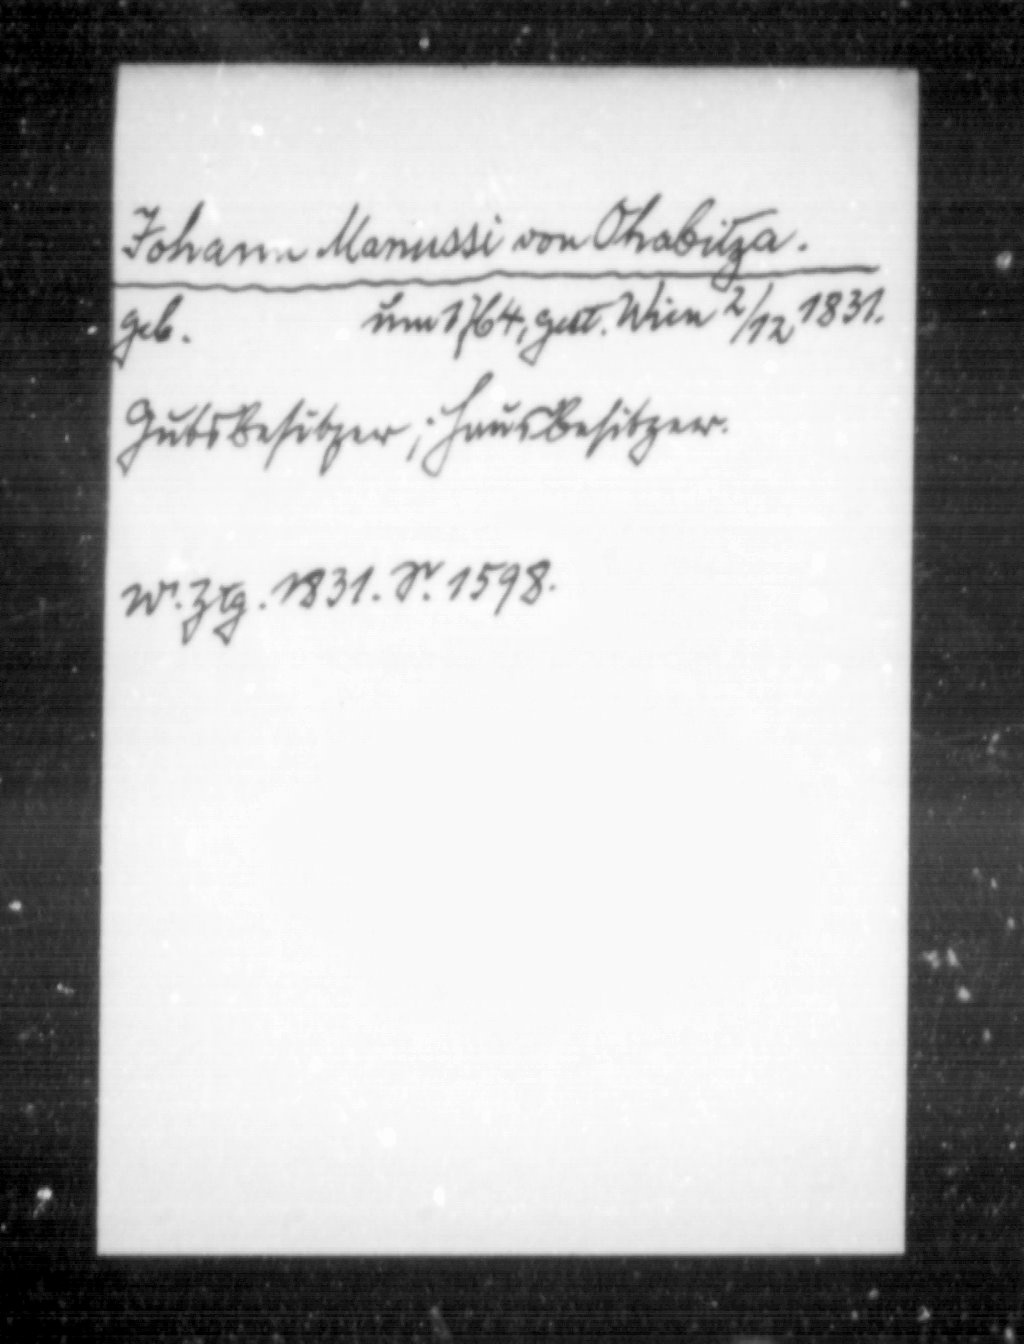 Johann Manussi von Ohabitza.
geb. um 1764, gest. Wien 2/12 1831.
Gutsbesitzer, Hausbesitzer.
W. Ztg. 1831. S. 1598.